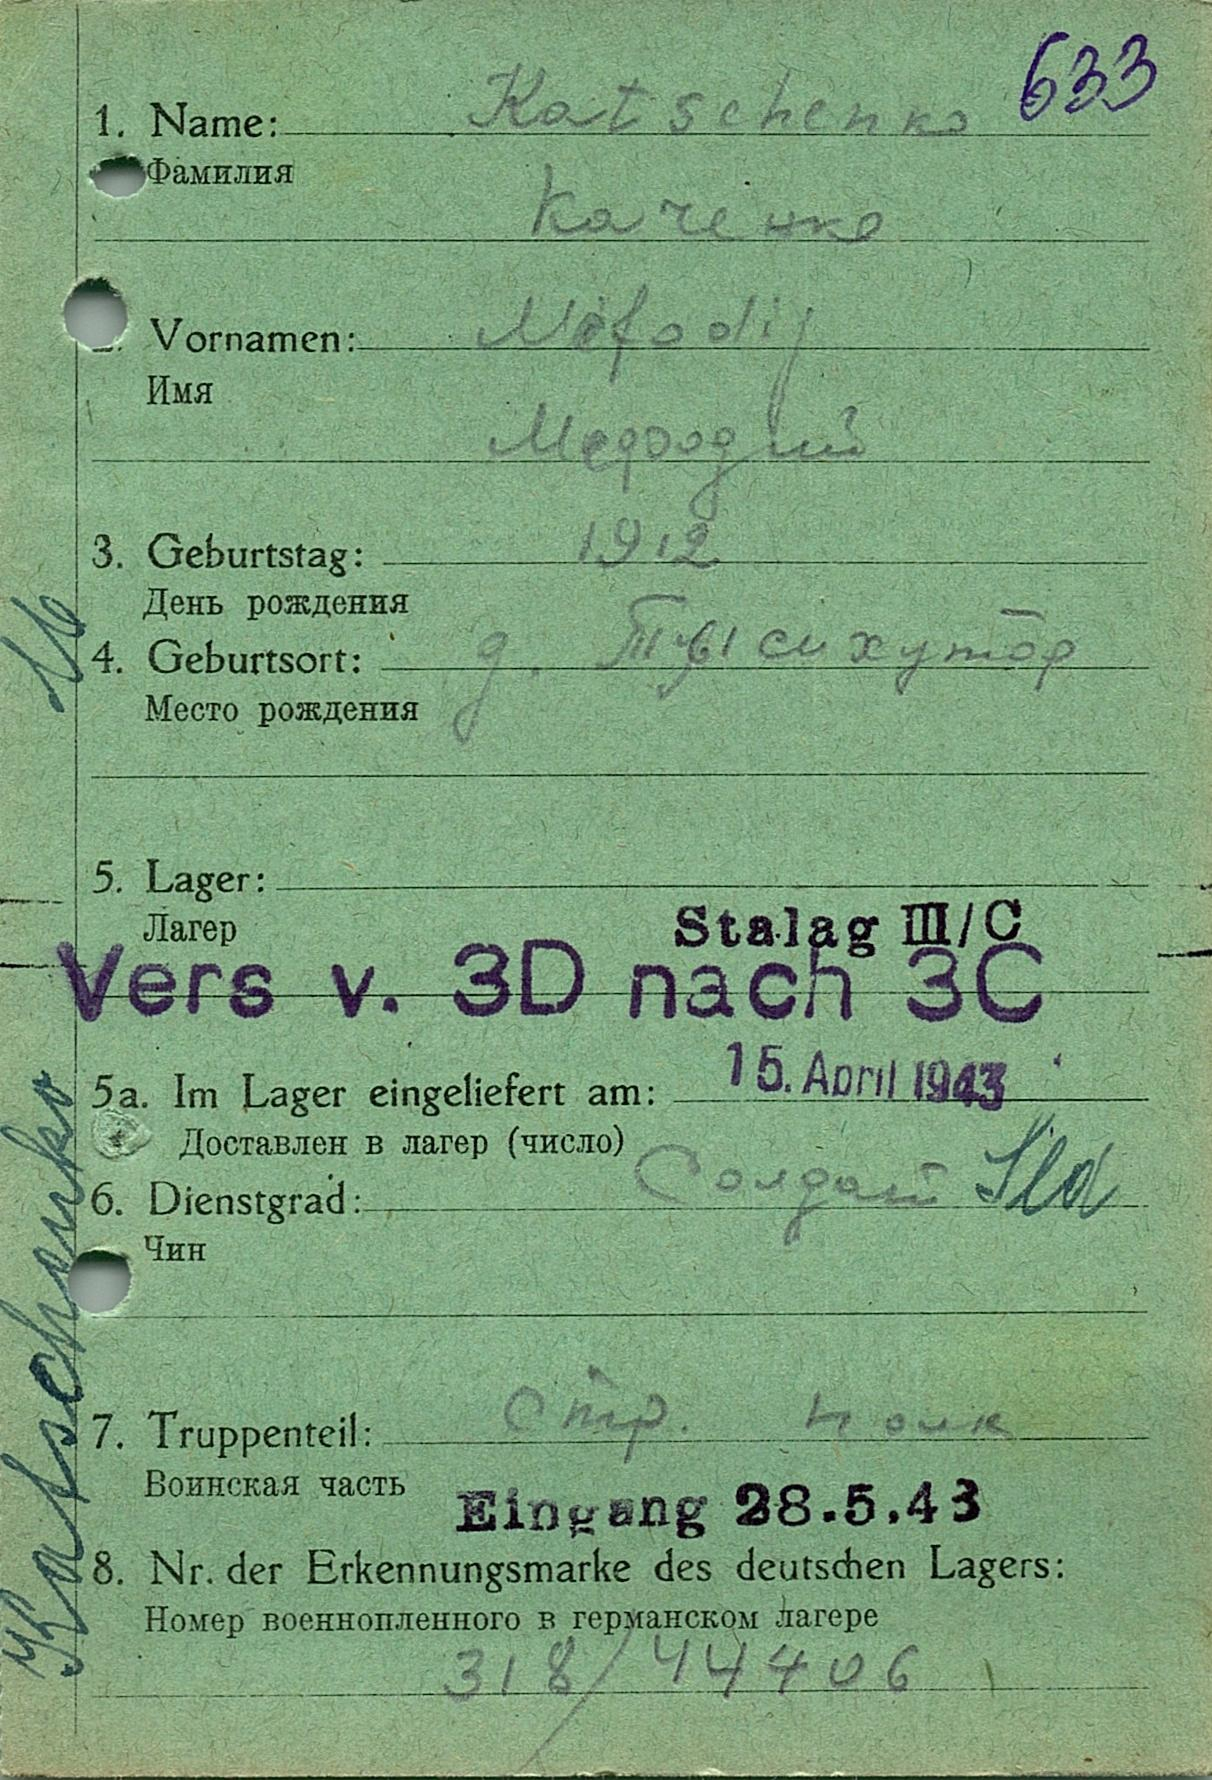 633
1. Name: Katschenko
Фамилия
Каченко
Vornamen: Mefodij
Имя
Мефодий
3. Geburtstag: 1912
День рождения
4. Geburtsort: д.
Место рождения
5. Lager:
Лагер
Stalag III/C
Vers v. 3D nach 3C
5a. Im Lager eingeliefert am: 15. April 1943
Доставлен в лагер (число)
6. Dienstgrad: Солдат Sld
Чин
7. Truppenteil: Стр. полк
Воинская часть
Eingang 28.5.43
8. Nr. der Erkennungsmarke des deutschen Lagers:
Номер военнопленного в германском лагере
318/44406
Katschenko